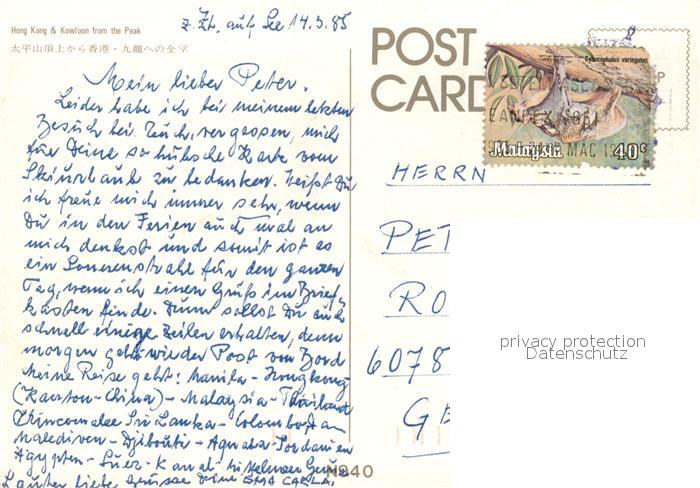 z. Zt. auf See 14.3.85
Hong Kong & Kowloon from the Peak
太平山頂上から香港・九龍への全望
Mein lieber Peter.
Leider habe ich bei meinem letzten
Besuch bei Euch, vergessen, mich
für Deine so hübsche Karte vom
Skiurlaub zu bedanken. Weißt Du
ich freue mich immer sehr, wenn
Du in den Ferien auch mal an
mich denkst und somit ist es
ein Sonnenstrahl für den ganzen
Tag, wenn ich einen Gruß im Brief-
kasten finde. Drum sollst Du auch
schnell einige Zeilen erhalten, denn
morgen geht wieder Post von Bord
Meine Reise geht: Manila - Hongkong
(Kanton-China) - Malaysia - Thailand
Trincomalee Sri Lanka - Colombo
Malediven - Djibouti - Aqaba - Jordanien
Ägypten - Suez-Kanal -
liebe Grüsse Deine OMA CARLA.
POST
CARD
Cynocephalus variegatus
Malaysia 40c
MAC
HERRN
PET
RO
6078
GE
privacy protection
Datenschutz
N940